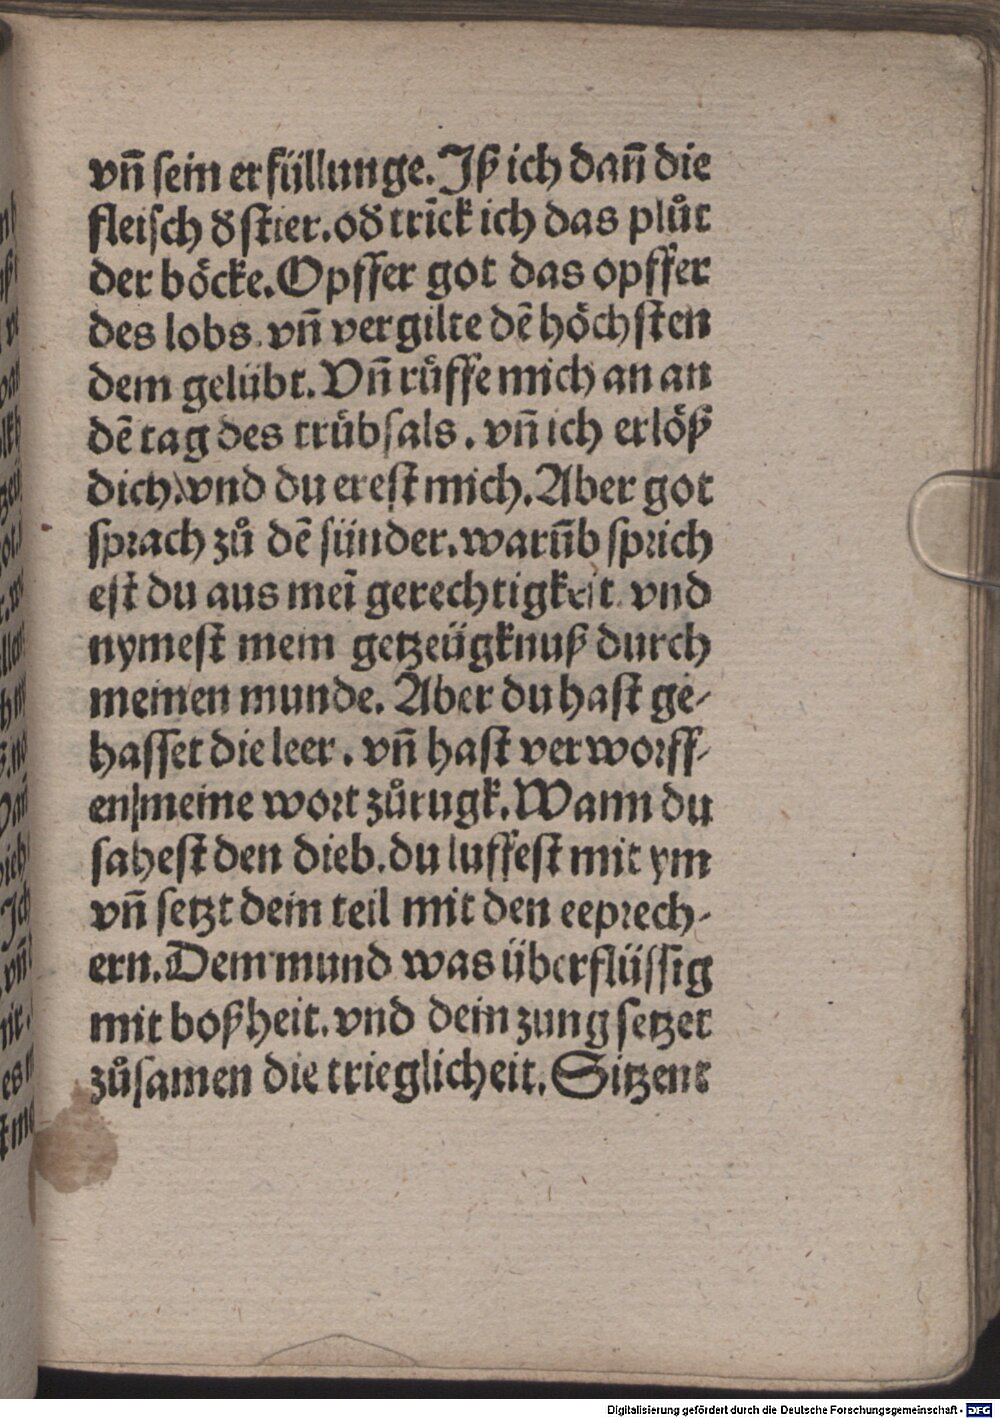 vn̄ ſein erfüllunge. Jß ich dan̄ die
fleiſch ꝺ ſtier. oꝺ trīck ich das plůt
der böcke. Opffer got das opffer
des lobs. vn̄ vergilte dē höchſten
dem gelübt. Vn̄ růffe mich an an
dē tag des trübſals. vn̄ ich erlöß
dich. vnd du ereſt mich. Aber got
ſprach zů dē ſünder. warūb ſprich
eſt du aus meī gerechtigkeit. vnd
nymeſt mein getzeügknuß durch
meinen munde. Aber du haſt ge⸗
haſſet die leer. vn̄ haſt verworff⸗
en meine wort zůrugk. Wann du
ſaheſt den dieb. du luffeſt mit ym
vn̄ ſetzt dein teil mit den eeprech⸗
ern. Dein mund was überflüſſig
mit boßheit. vnd dein zung ſetzet
zůſamen die trieglicheit. Sitzent
Digitalisierung gefördert durch die Deutsche Forschungsgemeinschaft - DFG